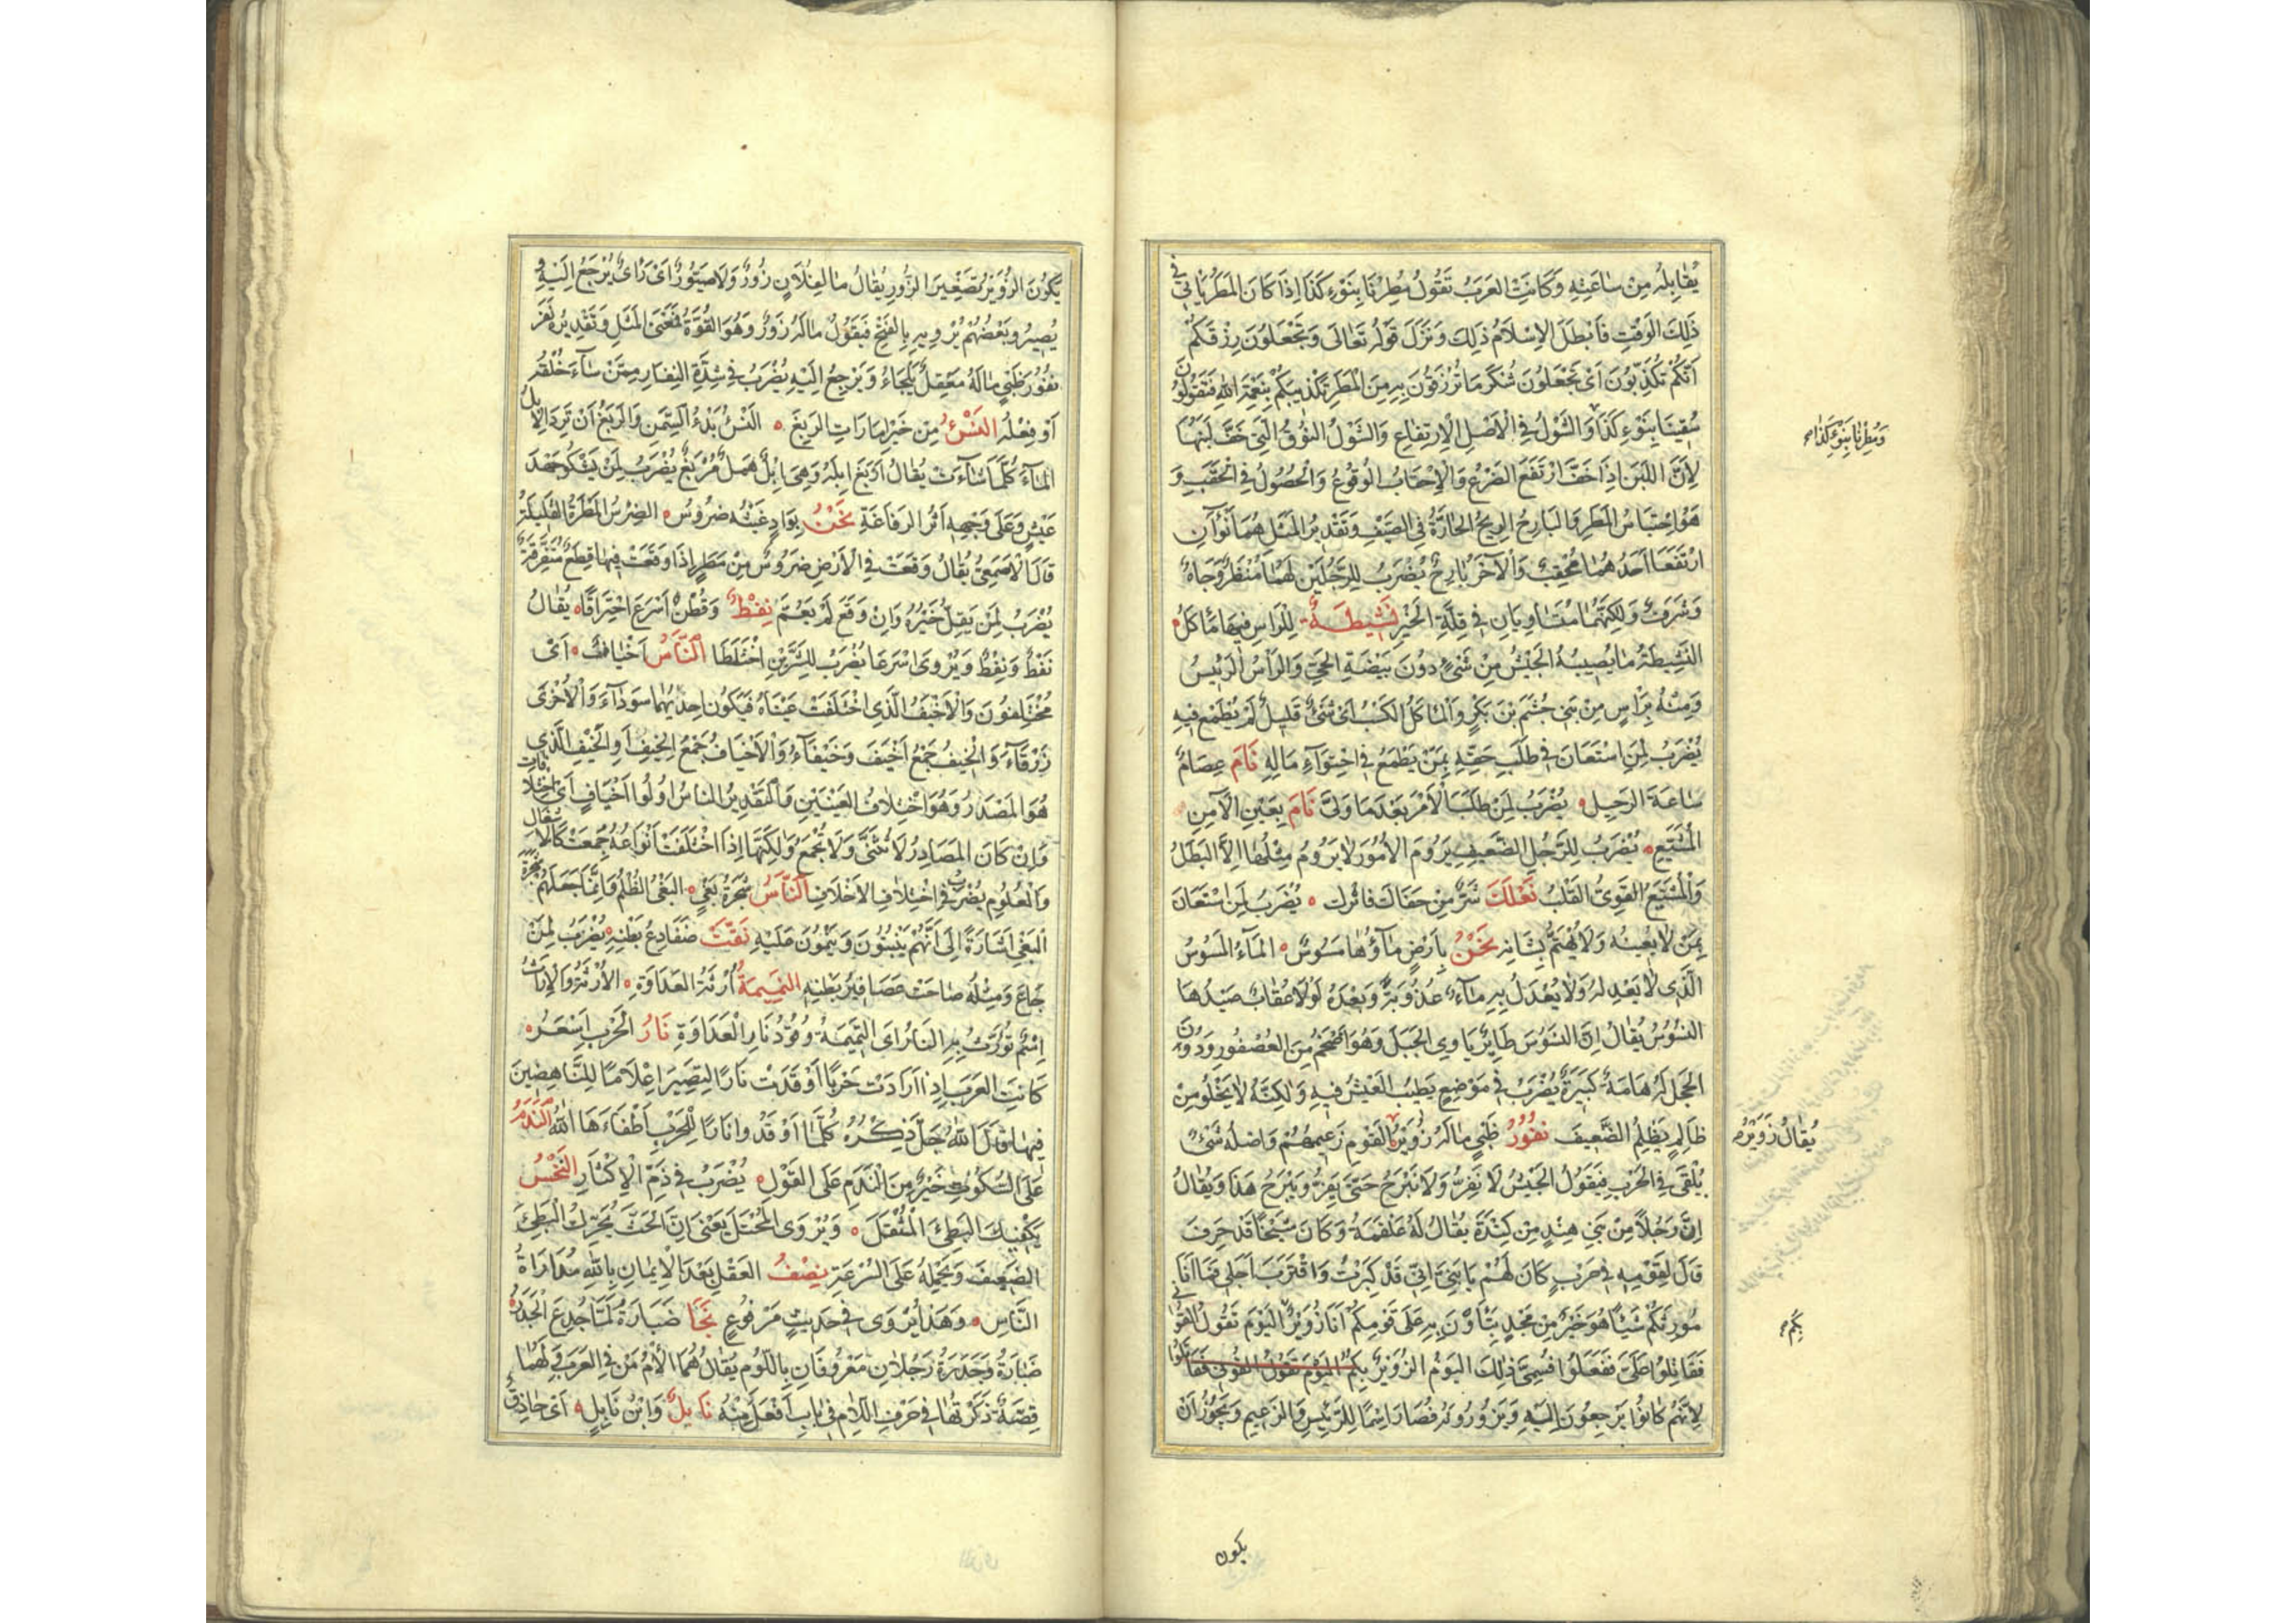 يُقَابِلُهُ مِنْ سَاعَتِهِ وَكَانَتِ العَرَبُ تَقُولُ مُطِرْنَا بِنَوْءِ كَذَا اِذَا كَانَ المَطَرُ يَأتي في
ذَلِكَ الوَقْتِ فَاَبْطَلَ الاِسْلَامُ ذلِكَ وَنَزَلَ قَوْلُهُ تَعَالَى وَتَجْعَلُونَ رِزْقَكُمْ
اَنَّكُمْ تُكَذِّبُونَ اَىْ تَجْعَلُونَ شُكْرَ مَا تُرْزَقُونَ بِهِ مِنَ المَطَرِ تَكْذِيبَكُمْ بِنِعْمَةِ اللهِ فَتَقُولُونَ
سُقِينَا بِنَوْءِ كَذَا وَالشَّوْلُ فِي الاَصْلِ الاِرْتِفَاعِ وَالشَّوْلُ النُّوقُ الَّتِي خَفَّ لَبَنُهَا
وَمُطِرْنَا بِنَوْءِ كَذَا صح
لِاَنَّ اللَّبَنَ اِذَا خَفَّ ارْتَفَعَ الضَّرْعُ وَالاِحْقَابُ الوُقُوعُ وَالْحُصُولُ فِي الْحَقَبِ وَ
هُوَ اِحْتِبَاسُ المَطَرِ وَالبَارِحُ الرِيحُ الحَارَّةُ فِي الصَّيْفِ وَتَقْدِيرُ المَثَلِ هُمَا نَوْآنِ
ارْتَفَعَا اَحَدُهُمَا مُحْقِبٌ وَالآخَرُ بَارِحٌ يُضْرَبُ لِلرَّجُلَيْنِ لَهُمَا مَنْظَرٌ وَجَاهٌ
وَشَرَفٌ وَلكِنَّهُمَا مُتَسَاوِيَانِ فِي قِلَّةِ الخَيْرِ نَشِيطَةٌ لِلرَّاسِ فِيهَا مَأكَلٌ
النَّشِيطَةُ مَا يُصِيبُهُ الجَيْشُ مِنْ شَىْءٍ دُونَ بَيْضَةِ الحَيِّ وَالرَّأسُ الرَئِيسُ
وَمِنْهُ بِرَأسٍ مِنْ بَنِي جُشَمَ بْنِ بَكْرٍ وَالمَأكَلُ الكَسْبُ اَىْ شَىْءٌ قَلِيلٌ لَمْ يُطْمَعْ فِيهِ
يُضْرَبُ لِمَنِ اسْتَعَانَ فِي طَلَبِ حَقِّهِ بِمَنْ يَطْمَعُ فِي احْتِوَآءِ مَالِهِ نَامَ عِصَامٌ
سَاعَةَ الرَحِيلِ يُضْرَبُ لِمَنْ طَلَبَ الاَمْرَ بَعْدَمَا وَلَّى نَامَ بِعَيْنِ الآمِنِ
المُشَيَّعِ يُضْرَبُ لِلرَّجُلِ الضَّعِيفِ يَرُومُ الاُمُورَ لَا يَرُومُ مِثْلَهَا اِلَّا البَطَلُ
وَالْمُشَيَّعُ القَوِىُّ القَلْبُ نَعْلُكَ شَرٌّ مِنْ حَفَاكَ فَاتْرك يُضْرَبُ لِمَنِ اسْتَعَانَ
بِمَنْ لَا يُعِينُهُ وَلَا يَهْتَمُّ بِشَانِهِ نَحْنُ بِاَرْضٍ مَاؤُهَا مَسُوسٌ المَآءُ المَسُوسُ
الَّذِى لَا يَعْدِلُهُ وَلَا يُعْدَلُ بِهِ مَآءٌ عُذُوبَةً وَبَعْدَهُ لَوْلَا عُقَابٌ صَيْدُهَا
النُسُوسُ يُقَالُ اِنَّ النُّسُوسَ طَائِرٌ يَاوِي الجَبَلَ وَهُوَ اَضْخَمُ مِنَ العُصْفُورِ وَدُونَ
الحَجَلِ لَهُ هَامَةٌ كَبِيرَةٌ يُضْرَبُ فِي مَوْضِعٍ يَطِيبُ العَيْشُ فِيهِ وَلكِنَّهُ لَا يَخْلُو مِنْ
ظَالِمٍ يَظْلِمُ الضَّعِيفَ نُفُورُ ظَبْيٍ مَالَهُ زُوَيْرٌ القَوْمِ زَعِيمُهُمْ وَاصْلُهُ شَىْءٌ
يُقَالُ زُوَيْرُ صح
يُلْقَى فِي الحَرْبِ فَيَقُولُ الجَيْشُ لَا نَفِرُّ وَلَا نَبْرَحُ حَتَّى يَفِرَّ وَيَبْرَحُ هَذَا وَيُقَالُ
اِنَّ رَجُلًا مِنْ بَنِي هِنْدٍ مِن كِنْدَةَ يُقَالُ لَهُ عَلْقَمَةُ وَكَانَ شَيْخًا قَدْ خَرِفَ
قَالَ لِقَوْمِهِ فِي حَرْبٍ كَانَ لَهُمْ يَا بَنِيَّ اِنِّي قَدْ كَبِرْتُ وَاقْتَرَبَ اَجَلِي فَمَا اَنَا
مُورِثُكُمْ شَيْئًا هُوَ خَيْرٌ مِنْ مَجْدٍ بَأوُنَ بِهِ عَلَى قَوْمِكُمْ اَنَا زُوَيْرُ اليَوْمَ تَقُولُ القَوْا
بكم صح
فَقَاتِلُوا عَلَىَّ فَفَعَلُوا فَسُمِّيَ ذلِكَ اليَوْمُ الزُوَيْرُ بكم اليَوْمَ تَقُولُ القومِ فقاتلوا
لِاَنَّهُمْ كَانُوا يَرْجِعُونَ اِلَيْهِ وَيَزُورُونَهُ فَصَارَ اسْمًا لِلرَّئِيسِ وَالزَعِيمِ وَيَجُوزُ اَنْ
يكون
يَكُونَ الزُوَيْرُ تَصْغِيرَ الزَّوْرِ يُقَالُ مَا لِفُلَانٍ زُورٌ وَلَا صَيُّورٌ اَىْ رَاىٌ يُرْجَعُ اِلَيْهِ وَ
يَصِيرُ وَبَعْضُهُمْ يُرْوِيهِ بِالفَتْحِ فَيَقُولُ مَالَهُ زَوْرٌ وَهُوَ القُوَّةُ فَمَعْنَى المَثَلِ وَتَقْدِيرُهُ نَفَرَ
نُفُورَ ظَبْيٍ مَالَهُ مَعْقِلٌ يَلْجَاُ وَيَرْجِعُ اِلَيْهِ يُضْرَبُ فِي شِدَّةِ النِفَارِ مِمَّنْ سَآءَ خُلُقُهُ
اَوْ فِعْلُهُ النَسْءُ مِن خَيْرِ اَمَارَاتِ الرَبْغِ النَسْءُ بَدْءُ السِّمَنِ وَالرَبْغُ اَنْ تَرِدَ الاِبلُ
المَآءَ كُلَّمَا شَاءَتْ يُقَالُ اَرْبَغَ ابِلَهُ وَهِيَ اِبِلٌ هَمَلٌ مُرْبَغٌ يُضْرَبُ لِمَنْ يَشْكُو جَهْدَ
عَيْشٍ وَعَلَى وَجْهِهِ اَثَرُ الرَفَاغَةِ نَحْنُ بِوَادٍ غَيْثُهُ ضَرُوسٌ الضِرْسُ المَطَرَةُ القَلِيلَةُ
قَالَ الاَصْمَعِيُّ يُقَالُ وَقَعَتْ فِي الْاَرْضِ ضُرُوسٌ مِنْ مَطَرٍ اِذَا وَقَعَتْ فِيهَا قِطَعٌ مُتَفَرِّقَةٌ
يُضْرَبُ لِمَنْ يَقِلُّ خَيْرُهُ وَاِنْ وَقَعَ لَمْ يَعُمَّ نِفْطٌ وَقُطْنٌ اَسْرَعَ احْتِرَاقًا يُقَالُ
نَفْطٌ وَنِفْطٌ وَيُرْوَى اَسْرَعَا يُضْرَبُ لِلشَّرَّيْنِ اخْتَلَطَا النَّاسُ اَخْيَافٌ اَىْ
مُخْتَلِفُونَ وَالْاَخْيَفُ الَّذِي اخْتَلَفَتْ عَيْنَاهُ فَيَكُونُ اِحْدَيهُمَا سَوْدَآءَ وَالْاُخْرَى
زَرْقَآءَ وَالْخِيفُ جَمْعُ اَخْيَفَ وَخَيْفَآءُ وَالْاَخْيَافُ جَمْعُ الخِيفِ اَوِ الْخَيَفِ الَّذِي
هُوَ المَصْدَرُ وَهُوَ اخْتِلَافُ العَيْنَيْنِ وَالتَقْدِيرُ النَاسُ اُولُوا اَخْيَافٍ اَىْ اخْتِلَافَاتٍ
وَاِنْ كَانَ المَصَادِرُ لَا تُثَنَّى وَلَا تُجْمَعُ وَلكِنَّهَا اِذَا اخْتَلَفَتْ اَنْوَاعُهُ جُمِعَتْ كَالاَشغال
وَالْعُلُومِ يُضْرَبُ فِي اخْتِلَافِ الاَخْلَاقِ النَّاسُ شَجَرَةُ بَغْيٍ البَغْيُ الظُّلْمُ وَاِنَّمَا جَعَلَهُمْ شجرة
البَغْيِ اِشَارَةً اِلَى اَنَّهُمْ يَنْبُتُونَ وَيَنْمُونَ عَلَيْهِ نَقَّتْ ضَفَادِعُ بَطْنِهِ يُضْرَبُ لِمَنْ
جَاعَ وَمِثْلُهُ صَاحَتْ عَصَافِيرُ بَطْنِهِ النَّمِيمَةُ اُرْثَةُ العَدَاوَةِ الاُرْثَةُ وَالاِرَاثُ
اِسْمٌ تُوَرَّثُ بِهِ النَارُ اَى النَّمِيمَةُ وُقُودُ نَارِ الْعَدَاوَةِ نَارُ الْحَرْبِ اَسْعَرُ
كَانَتِ العَرَبَ اِذَا اَرَادَتْ حَرْبًا اَوْقَدَتْ نَارًا لِيَصِيرَ اِعْلَامًا لِلنَّاهِضِينَ
فِيهَا قَالَ اللهُ جَلَّ ذِكْرُهُ كُلَّمَا اَوْقَدُوا نَارًا لِلْحَرْبِ اَطْفَاَهَا اللهُ النَّدَمُ
عَلَى السُّكُوتِ خَيْرٌ مِنَ النَّدَمِ عَلَى القَوْلِ يُضْرَبُ فِي ذَمِّ الاِكْثَارِ النَّخْسُ
يَكْفِيكَ البَطِيءَ الْمُثْقَلَ وَيُرْوَى المُخْتَلَ يَعْنِي اِنَّ الحَثَّ يُحَرِّكُ البَطِيءَ
الضَعِيفَ وَيَحْمِلُهُ عَلَى السُّرْعَةِ نِصْفُ العَقْلِ بَعْدَ الاِيمَانِ بِاللهِ مُدَارَاةُ
النَّاسِ وَهَذَا يُرْوَى فِي حَدِيثٍ مَرْفُوعٍ نَجَا ضَبَارَةُ لَمَّا جُدِعَ الْجَدَرَةُ
ضَبَارَةُ وَجَدَرَةُ رَجُلَانِ مَعْرُوفَانِ بِاللُّوْمِ يُقَالُ هُمَا اَلْاَمُ مَنْ فِي العَرَبِ وَلَهُمَا
قِصَّةٌ ذَكَرْتُهَا فِي حَرْفِ اللَّامِ فِي بَابِ اَفْعَلُ مِنْهُ نَابِلٌ وَابْنُ نَابِلٍ اَىْ حَاذِقٌ و